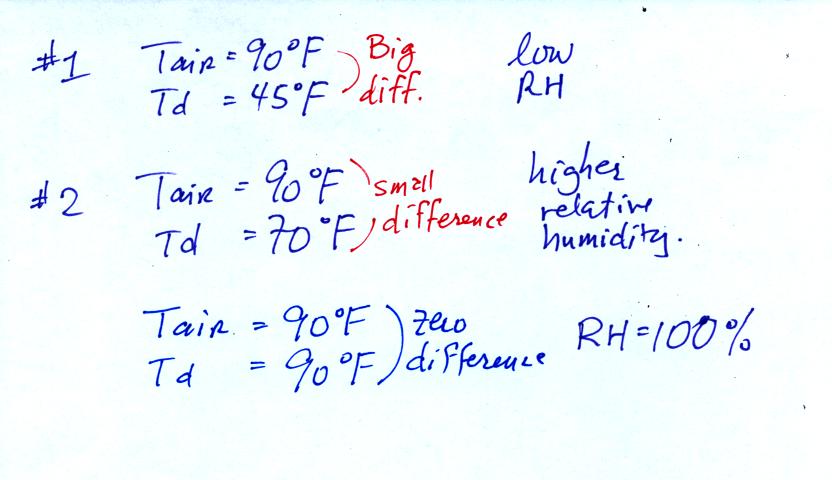 #1 Tair = 90°F Big low
Td = 45°F diff. RH
#2 Tair = 90°F small higher
Td = 70°F difference relative
humidity.
Tair = 90°F zero RH = 100%
Td = 90°F difference